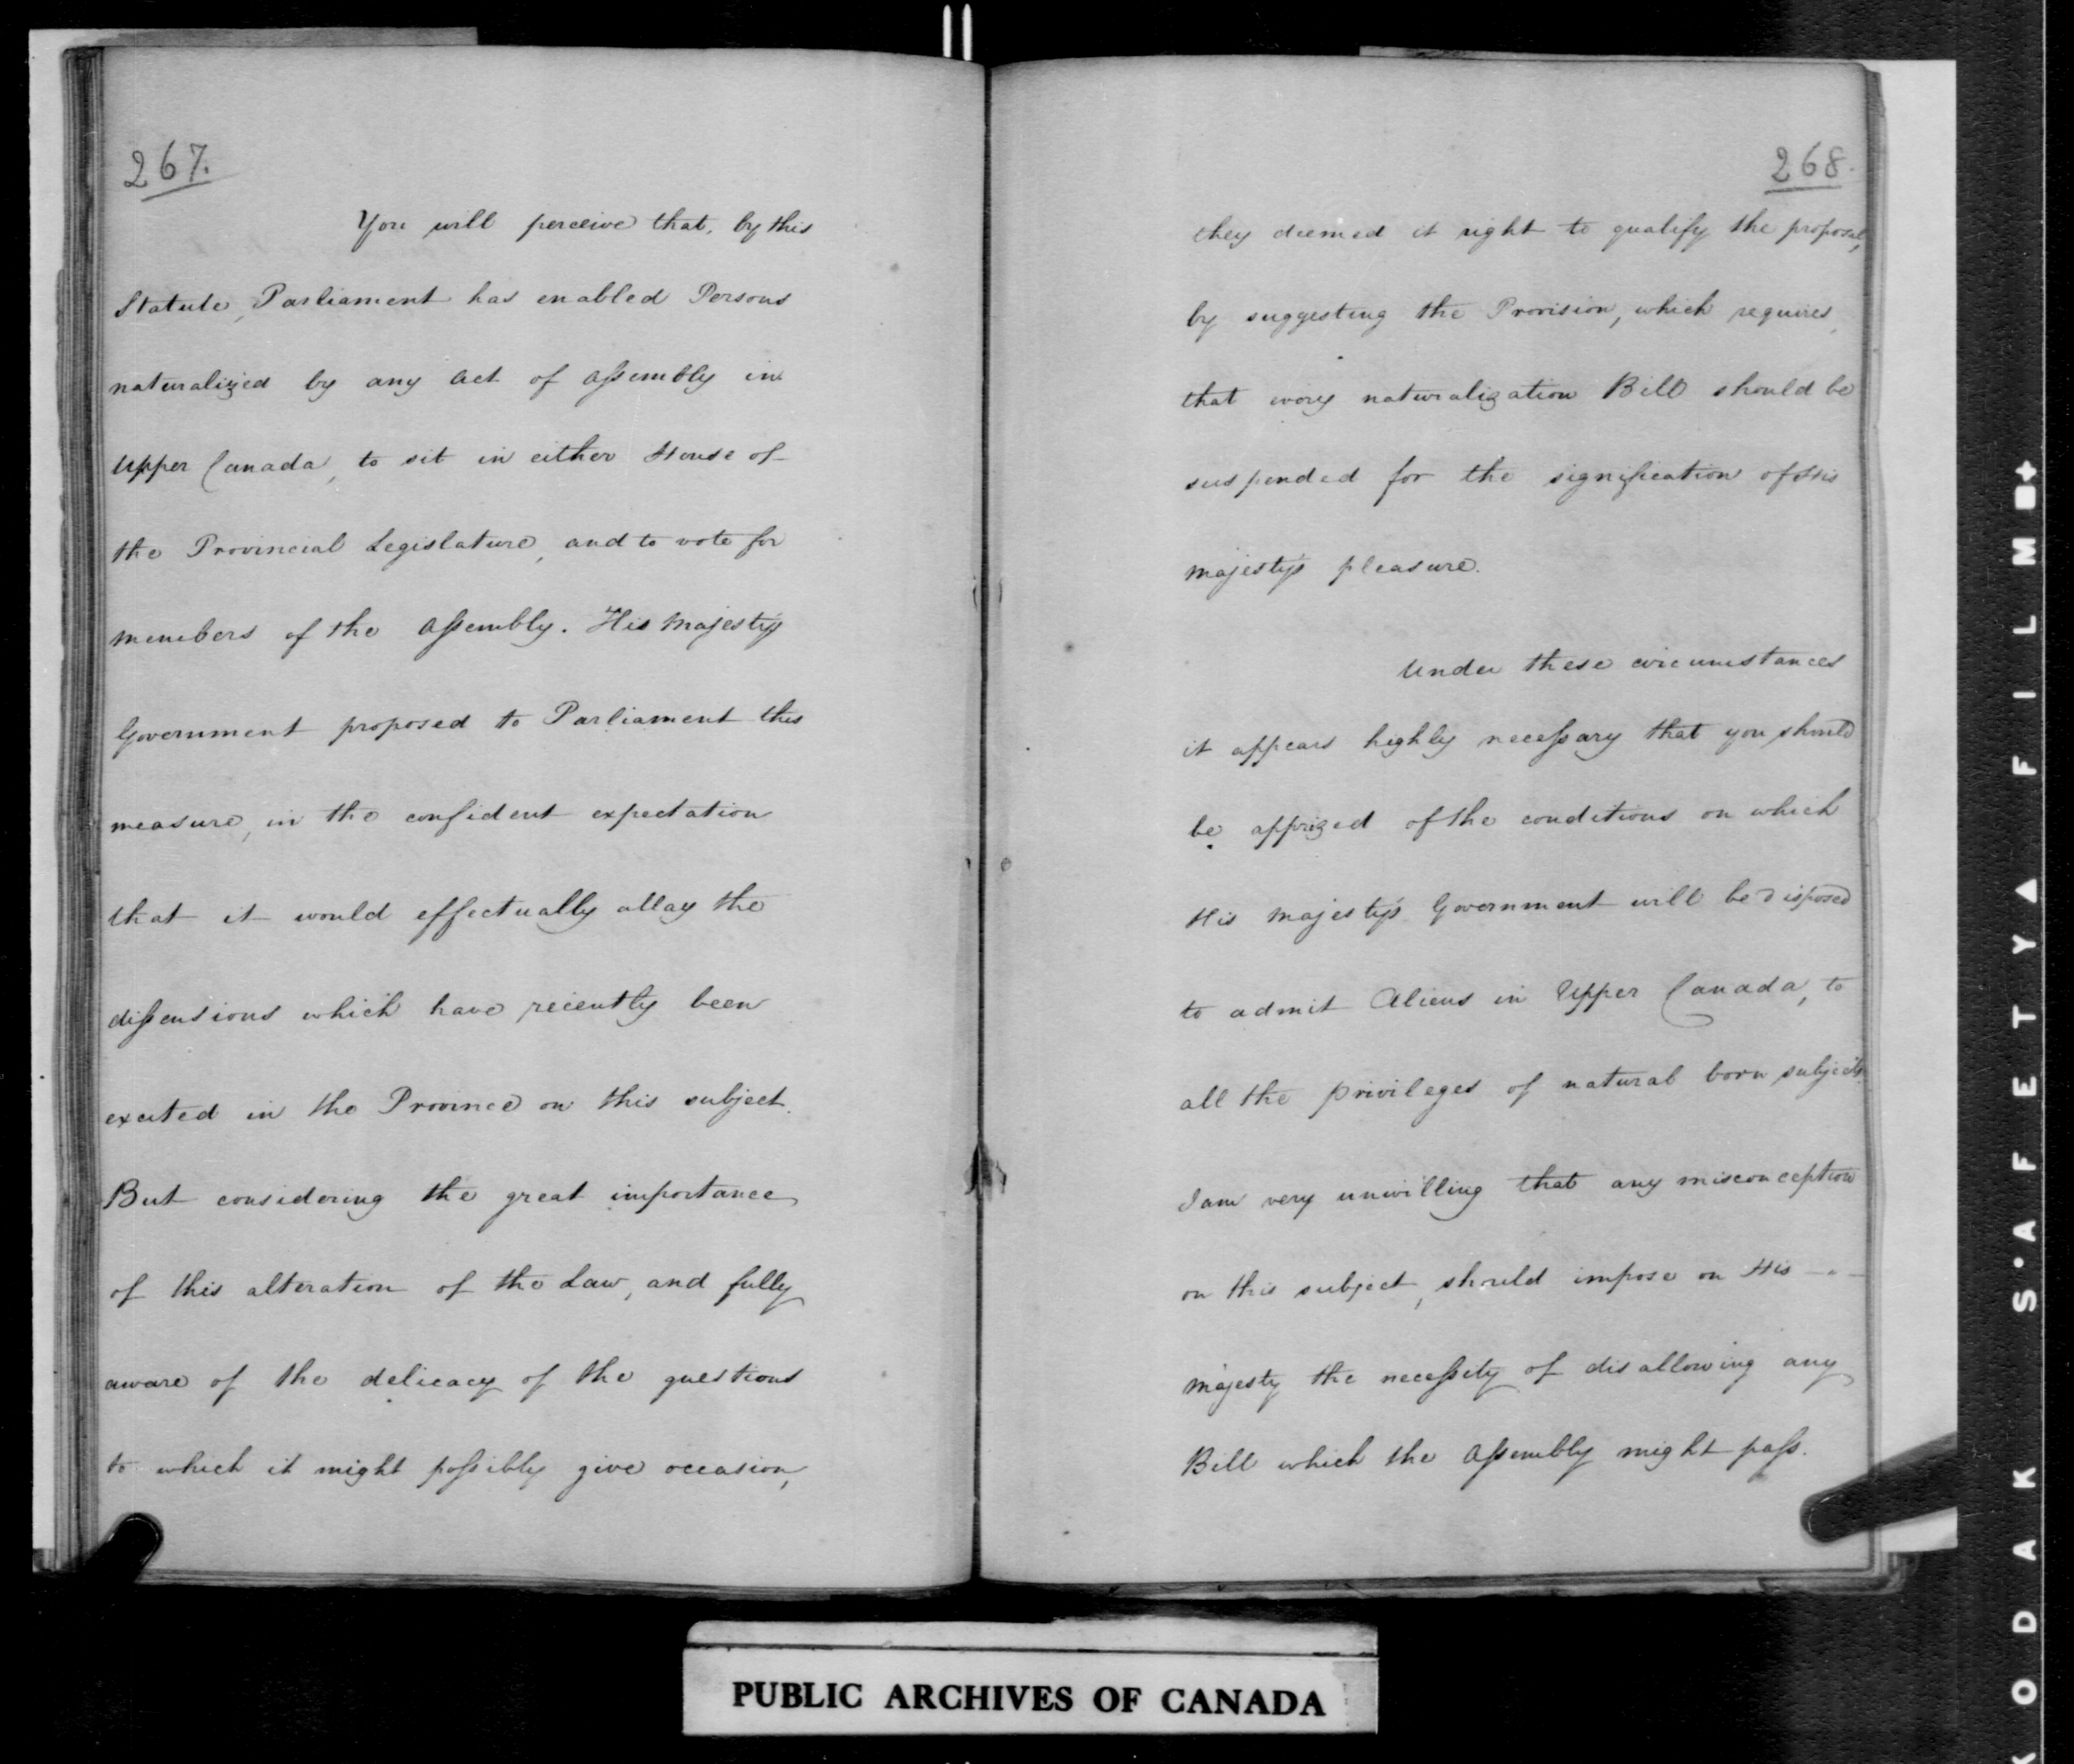 267.
You will perceive that, by this
Statute, Parliament has enabled Persons
naturalized by any Act of Assembly in
Upper Canada, to sit in either House of
the Provincial Legislature, and to vote for
members of the Assembly. His Majesty's
Government proposed to Parliament this
measure, in the confident expectation
that it would effectually allay the
dissensions which have recently been
excited in the Province on this subject.
But considering the great importance
of this alteration of the Law, and fully
aware of the delicacy of the questions
to which it might possibly give occasion,
268.
they deemed it right to qualify the proposal,
by suggesting the Provision, which requires,
that every naturalization Bill should be
suspended for the signification of His
Majesty's pleasure.
Under these circumstances
it appears highly necessary that you should
be apprized of the conditions on which
His Majesty's Government will be disposed
to admit Aliens in Upper Canada, to
all the privileges of natural born subjects.
I am very unwilling that any misconception
on this subject, should impose on His
Majesty the necessity of disallowing any
Bill which the Assembly might pass.
PUBLIC ARCHIVES OF CANADA
KODAK S'AFETY FILM